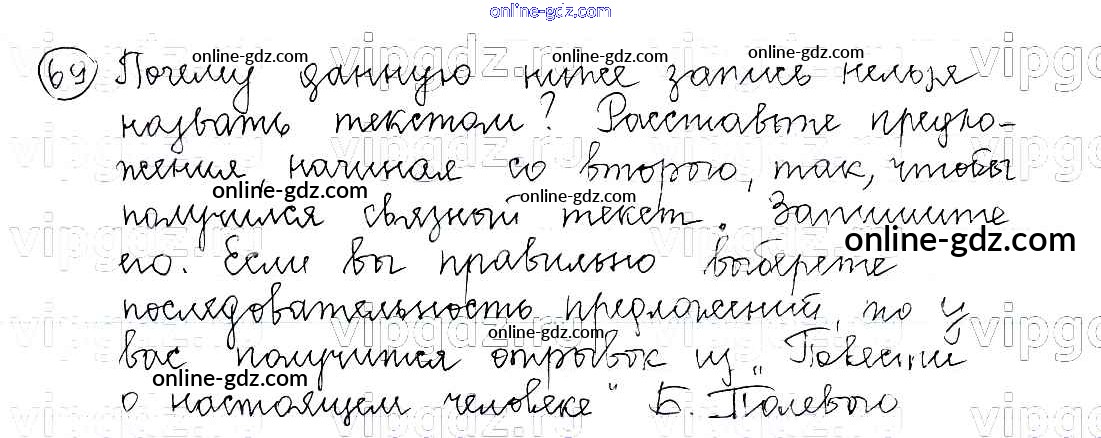 online-gdz.com
69 Почему данную ниже запись нельзя
назвать текстом? Расставьте предло-
жения, начиная со второго, так, чтобы
получился связный текст. Запишите
его. Если вы правильно выберете
последовательность предложений, то у
вас получится отрывок из „Повести
о настоящем человеке" Б. Полевого
online-gdz.com
online-gdz.com
online-gdz.com
online-gdz.com
online-gdz.com
online-gdz.com
online-gdz.com
online-gdz.com
online-gdz.com
online-gdz.com
vipgdz.ru